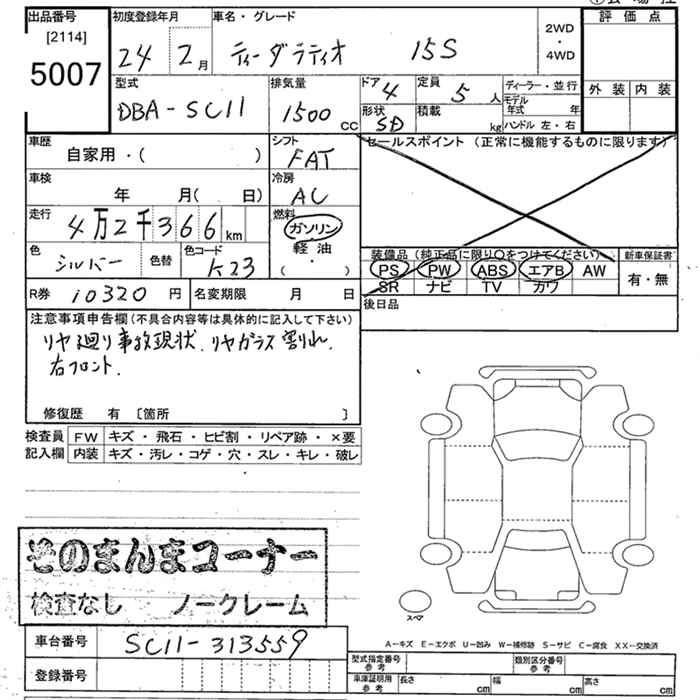 出品番号
[2114]
5007
初度登録年月
24 2月
車名・グレード
ティーダラティオ 15S
2WD
・
4WD
評価点
外装 内装
型式
DBA-SC11
排気量
1500 CC
ドア 4
形状 SD
定員 5 人
積載 kg
ディーラー・並行
モデル年式 年
ハンドル 左・右
車歴
自家用・( )
シフト
FAT
セールスポイント (正常に機能するものに限ります)
車検
年 月( 日)
冷房
AC
走行
4万2千366km
燃料
ガソリン
軽油
・
( )
色
シルバー
色替
色コード
K23
装備品(純正品に限り〇をつけてください)
PS PW ABS エアB AW
SR ナビ TV カワ
新車保証書
有・無
R券 10320 円
名変期限 月 日
後日品
注意事項申告欄(不具合内容等は具体的に記入して下さい)
リヤ廻り事故現状、リヤガラス割れ、
右フロント、
修復歴 有 〔箇所 〕
検査員 FW キズ・飛石・ヒビ割・リペア跡・×要
記入欄 内装 キズ・汚レ・コゲ・穴・スレ・キレ・破レ
そのまんまコーナー
検査なし ノークレーム
スペア
A-キズ E-エクボ U-凹み W-補修跡 S-サビ C-腐食 XX-交換済
車台番号 SC11-313559
登録番号
型式指定番号 参考
類別区分番号 参考
車庫証明用 参考
長さ cm 幅 cm 高さ cm